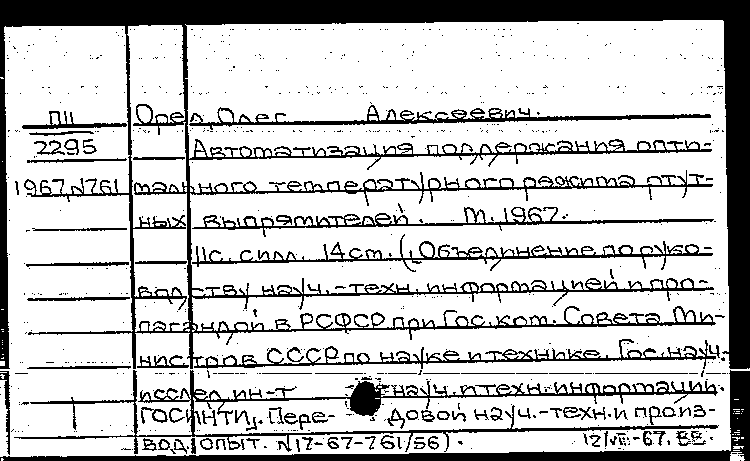 ПII Орел, Олег Алексеевич.
2295 Автоматизация поддержания опти-
1967, N761 мального температурного режима ртут-
ных выпрямителей. М., 1967.
11с. с илл. 14 см. (Объединение по руко-
водству науч.-техн. информацией и про-
пагандой в РСФСР при Гос. ком. Совета Ми-
нистров СССР по науке и технике. Гос. науч.
исслед. ин-т науч. и техн. информации.
ГОСИНТИ. Пере- довой науч.-техн. и произ-
вод. опыт. N17-67-761/56).
12/VII-67. ВВ.